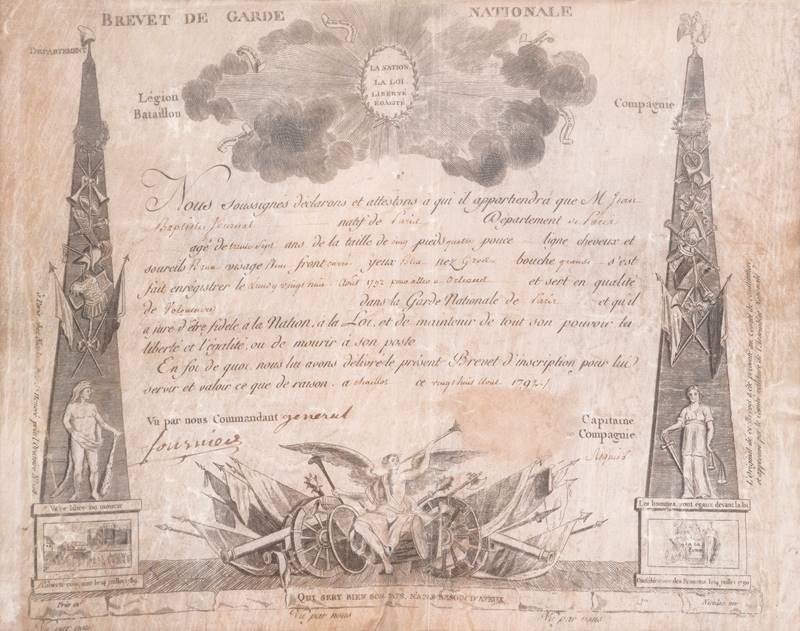 BREVET DE GARDE NATIONALE
DEPARTEMENT
LA NATION
LA LOI
LIBERTÉ
EGALITÉ
Légion
Bataillon
Compagnie
Nous soussignés déclarons et attestons a qui il appartiendra que M. Jean
Baptiste natif de Paris Département de Paris
agé de trente sept ans de la taille de cinq pieds quatre pouce ligne cheveux et
sourcils Brun visage front yeux Bleu nez Gros bouche grande s'est
fait enregistrer le vingt huit Août 1792 pour aller a et sert en qualité
de Volontaire dans la Garde Nationale de Paris et qu'il
a juré d'être fidele à la Nation, à la Loi, et de maintenir de tout son pouvoir la
liberté et l'égalité, ou de mourir à son poste
En foi de quoi, nous lui avons délivré le présent Brevet d'inscription pour lui
servir et valoir ce que de raison. a chaillot ce vingt huit Aout 1792
Vu par nous Commandant general
fournier
Capitaine
Compagnie
Vivre libre ou mourir
Les hommes sont égaux devant la loi
14 juillet 1789
14 juillet 1790
QUI SERT BIEN SON PAIS, N'A PAS BESOIN D'AYEUX
Vu par nous
Vu par nous
Vu par nous
L'Original de ce Brevet a été présenté au Comité de constitution,
et approuvé par le Comité militaire de l'Assemblée Nationale